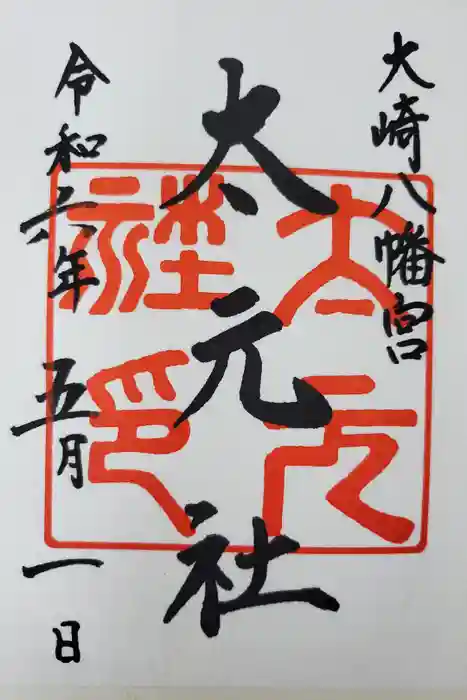 大崎八幡宮
太元社
令和六年 五月 一日
太元社印